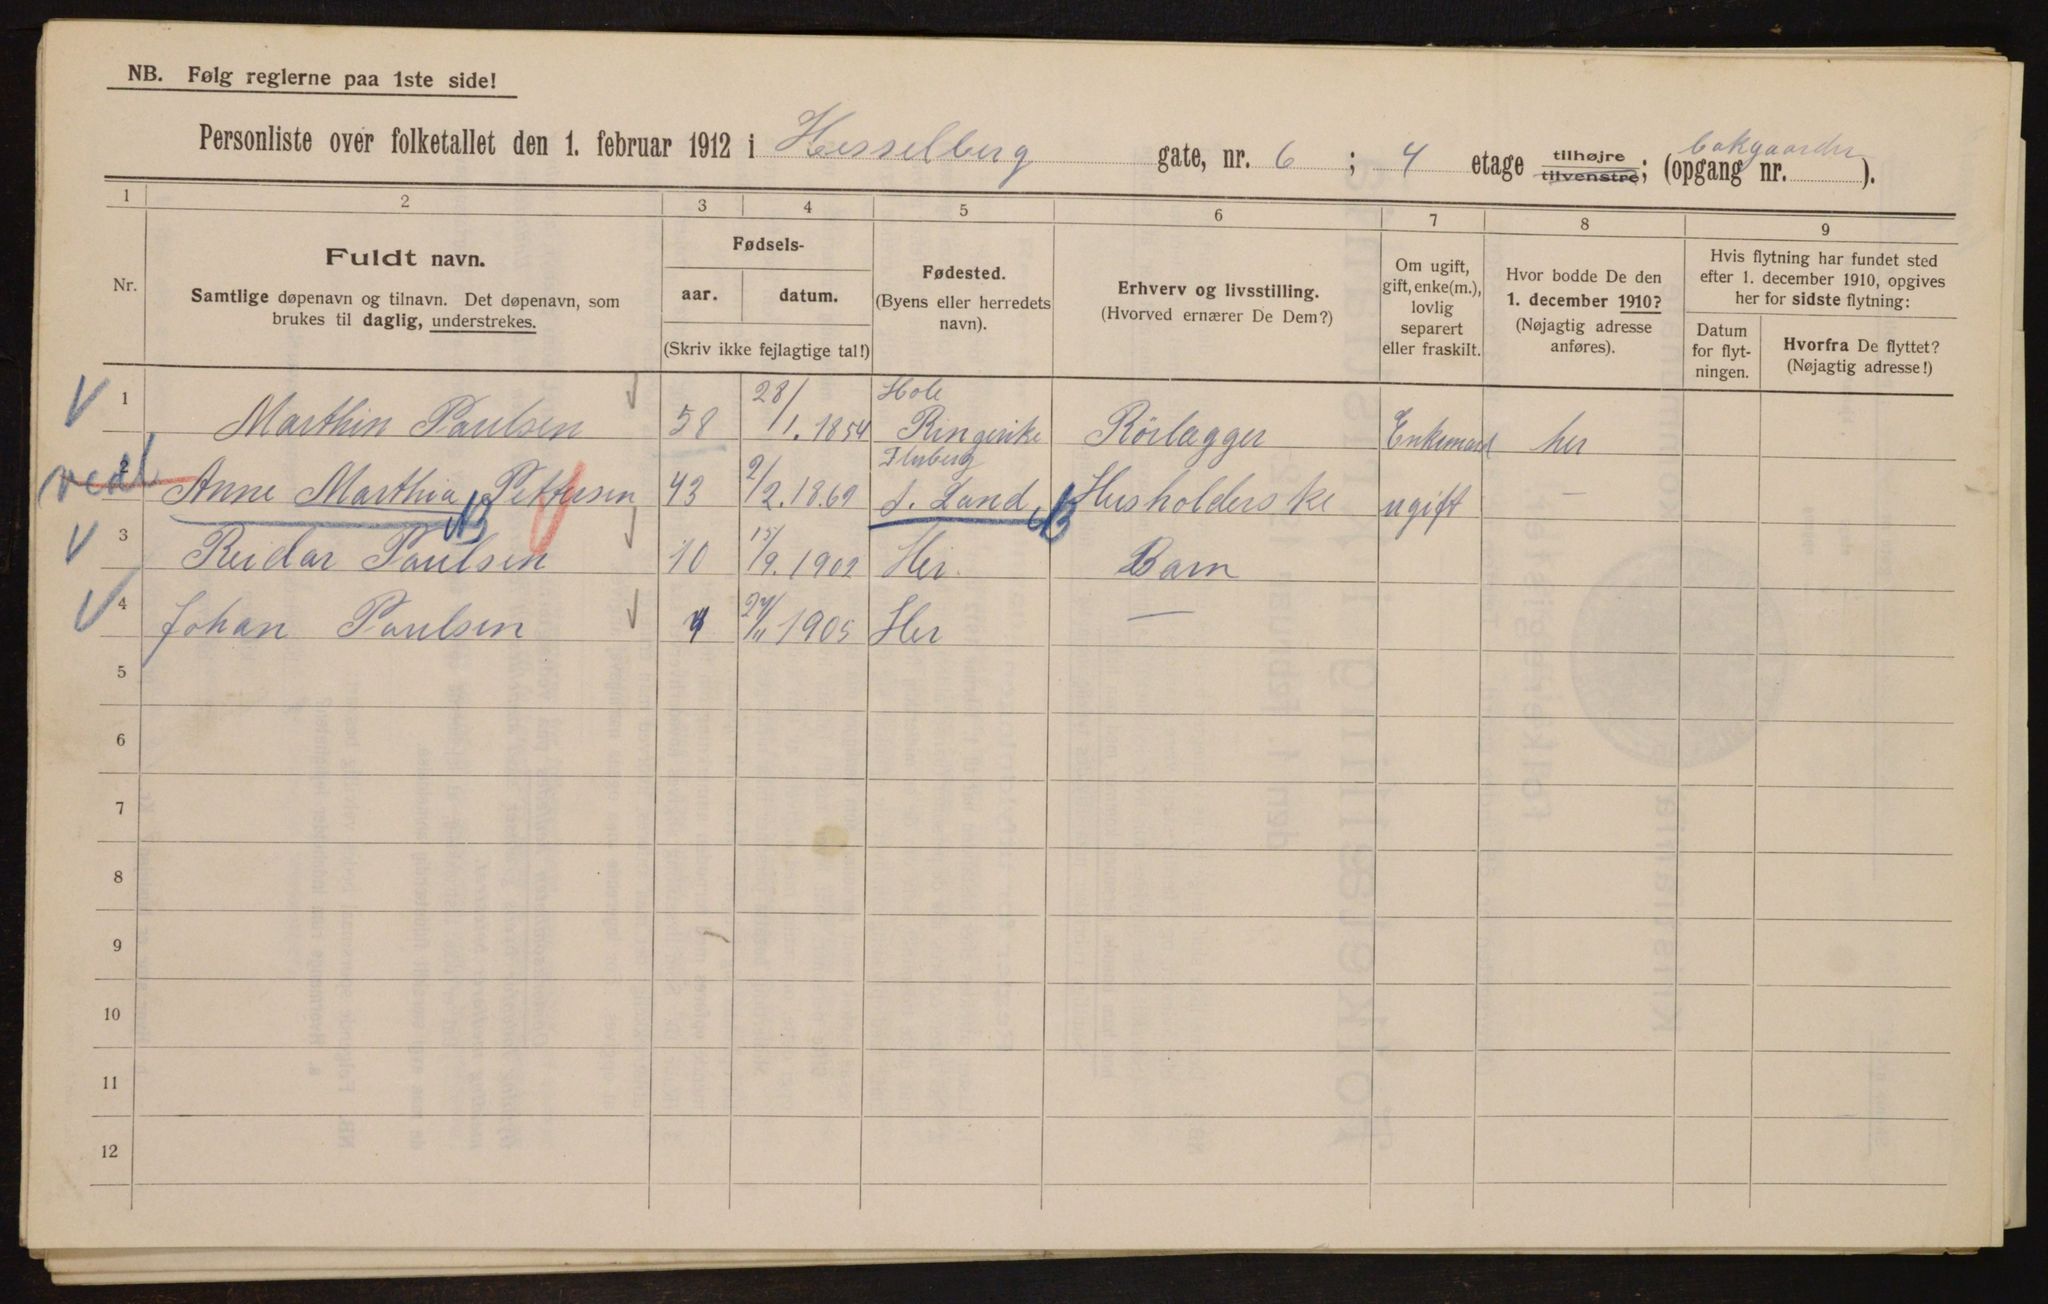 NB. Følg reglerne paa 1ste side!
bakgaarden
Personliste over folketallet den 1. februar 1912 i Hesselberg gate, nr. 6 ; 4 etage tilhøjre tilvenstre; (opgang nr. ).
1 2 3 4 5 6 7 8 9
Nr.
Fuldt navn.
Samtlige døpenavn og tilnavn. Det døpenavn, som
brukes til daglig, understrekes.
Fødsels-
aar. datum.
(Skriv ikke fejlagtige tal!)
Fødested.
(Byens eller herredets
navn).
Erhverv og livsstilling.
(Hvorved ernærer De Dem?)
Om ugift,
gift, enke(m.),
lovlig
separert
eller fraskilt.
Hvor bodde De den
1. december 1910?
(Nøjagtig adresse
anføres).
Hvis flytning har fundet sted
efter 1. december 1910, opgives
her for sidste flytning:
Datum
for flyt-
ningen.
Hvorfra De flyttet?
(Nøjagtig adresse!)
Hole
1 Marthin Paulsen 58 28/1. 1854 Ringerike Rörlægger Enkemand her
Fluberg
2 Anne Marthia Pettersen 43 2/2. 1869 S. Land Husholderske ugift —
3 Reidar Paulsen 10 15/9. 1902 Her. Barn
4 Johan Paulsen 24/11 1905 Her —
5
6
7
8
9
10
11
12